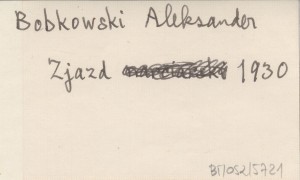 Bobkowski Aleksander
Zjazd 1930
BT/052/5721